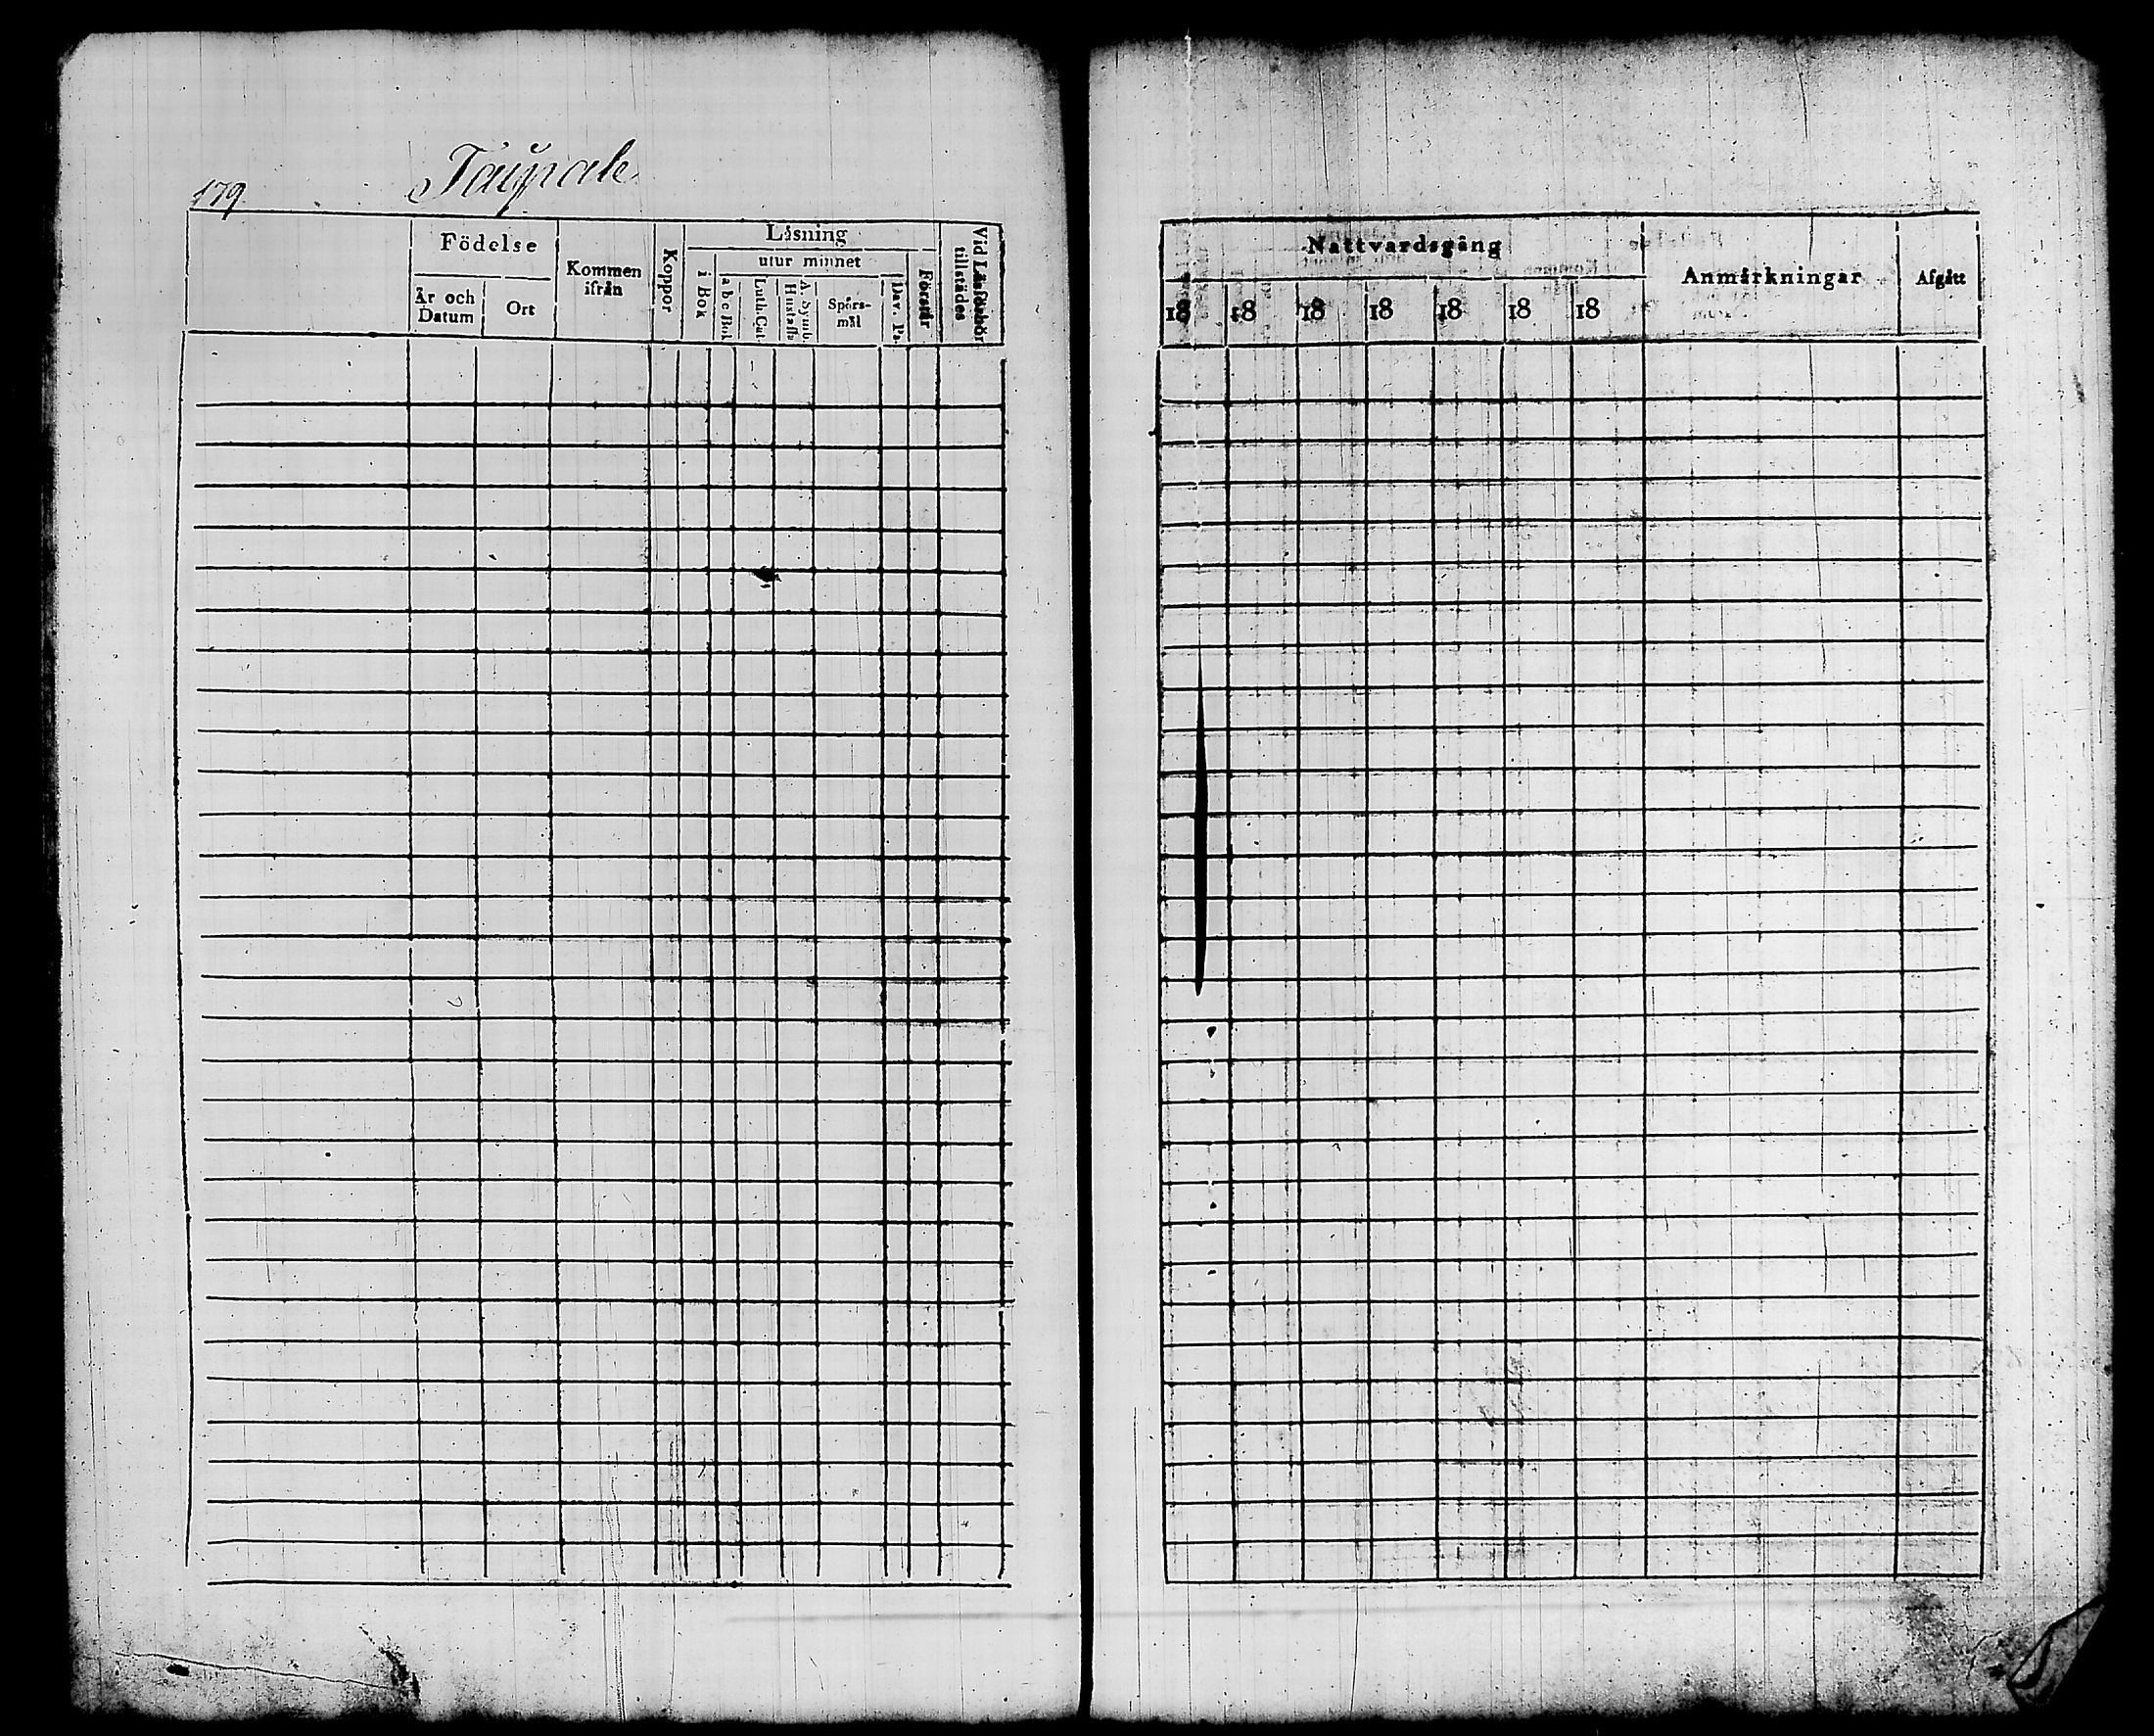 179. Taipale
Födelse
År och Datum
Ort
Kommen ifrån
Koppor
Låsning
i Bok
utur minnet
a b c Bok
Luth. Cat.
A. Symb. Hustafla
Spörs-mål
Dav. Ps.
Förstår
Vid Läsförhör tillstädes
Nattvardsgång
18 18 18 18 18 18 18
Anmärkningar
Afgått